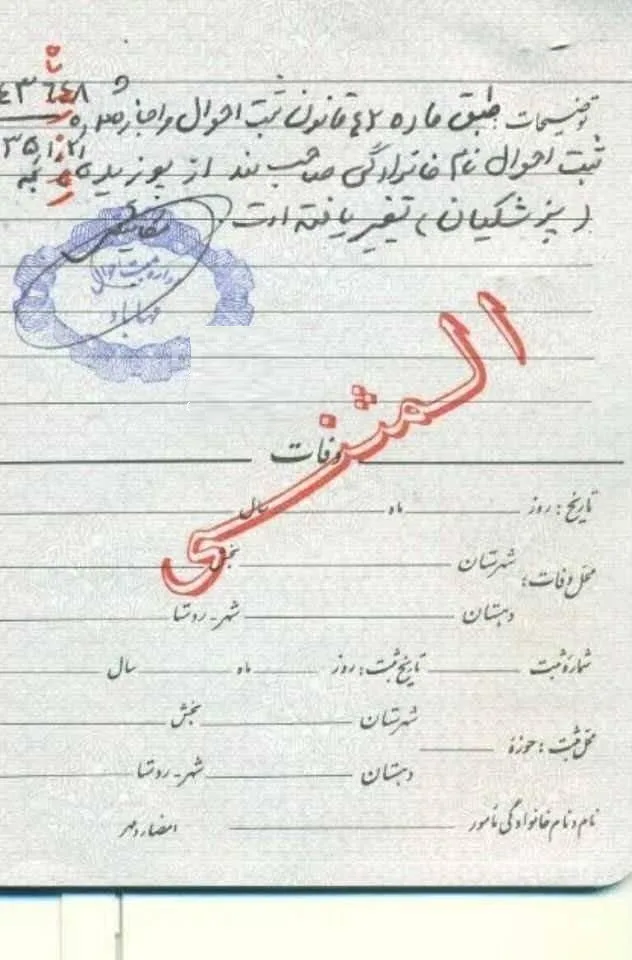 توضیحات طبق ماده ۴۲ قانون ثبت احوال و اجازه
ثبت احوال نام خانوادگی صاحب سند از به
(پزشکیان) تغییر یافته است.
اداره ثبت احوال
مهاباد
المثنی
وفات
تاریخ: روز ماه سال
محل وفات: شهرستان بخش
دهستان شهر-روستا
شماره ثبت تاریخ ثبت: روز ماه سال
محل ثبت: حوزه شهرستان بخش
دهستان شهر-روستا
نام و نام خانوادگی مأمور امضاء و مهر